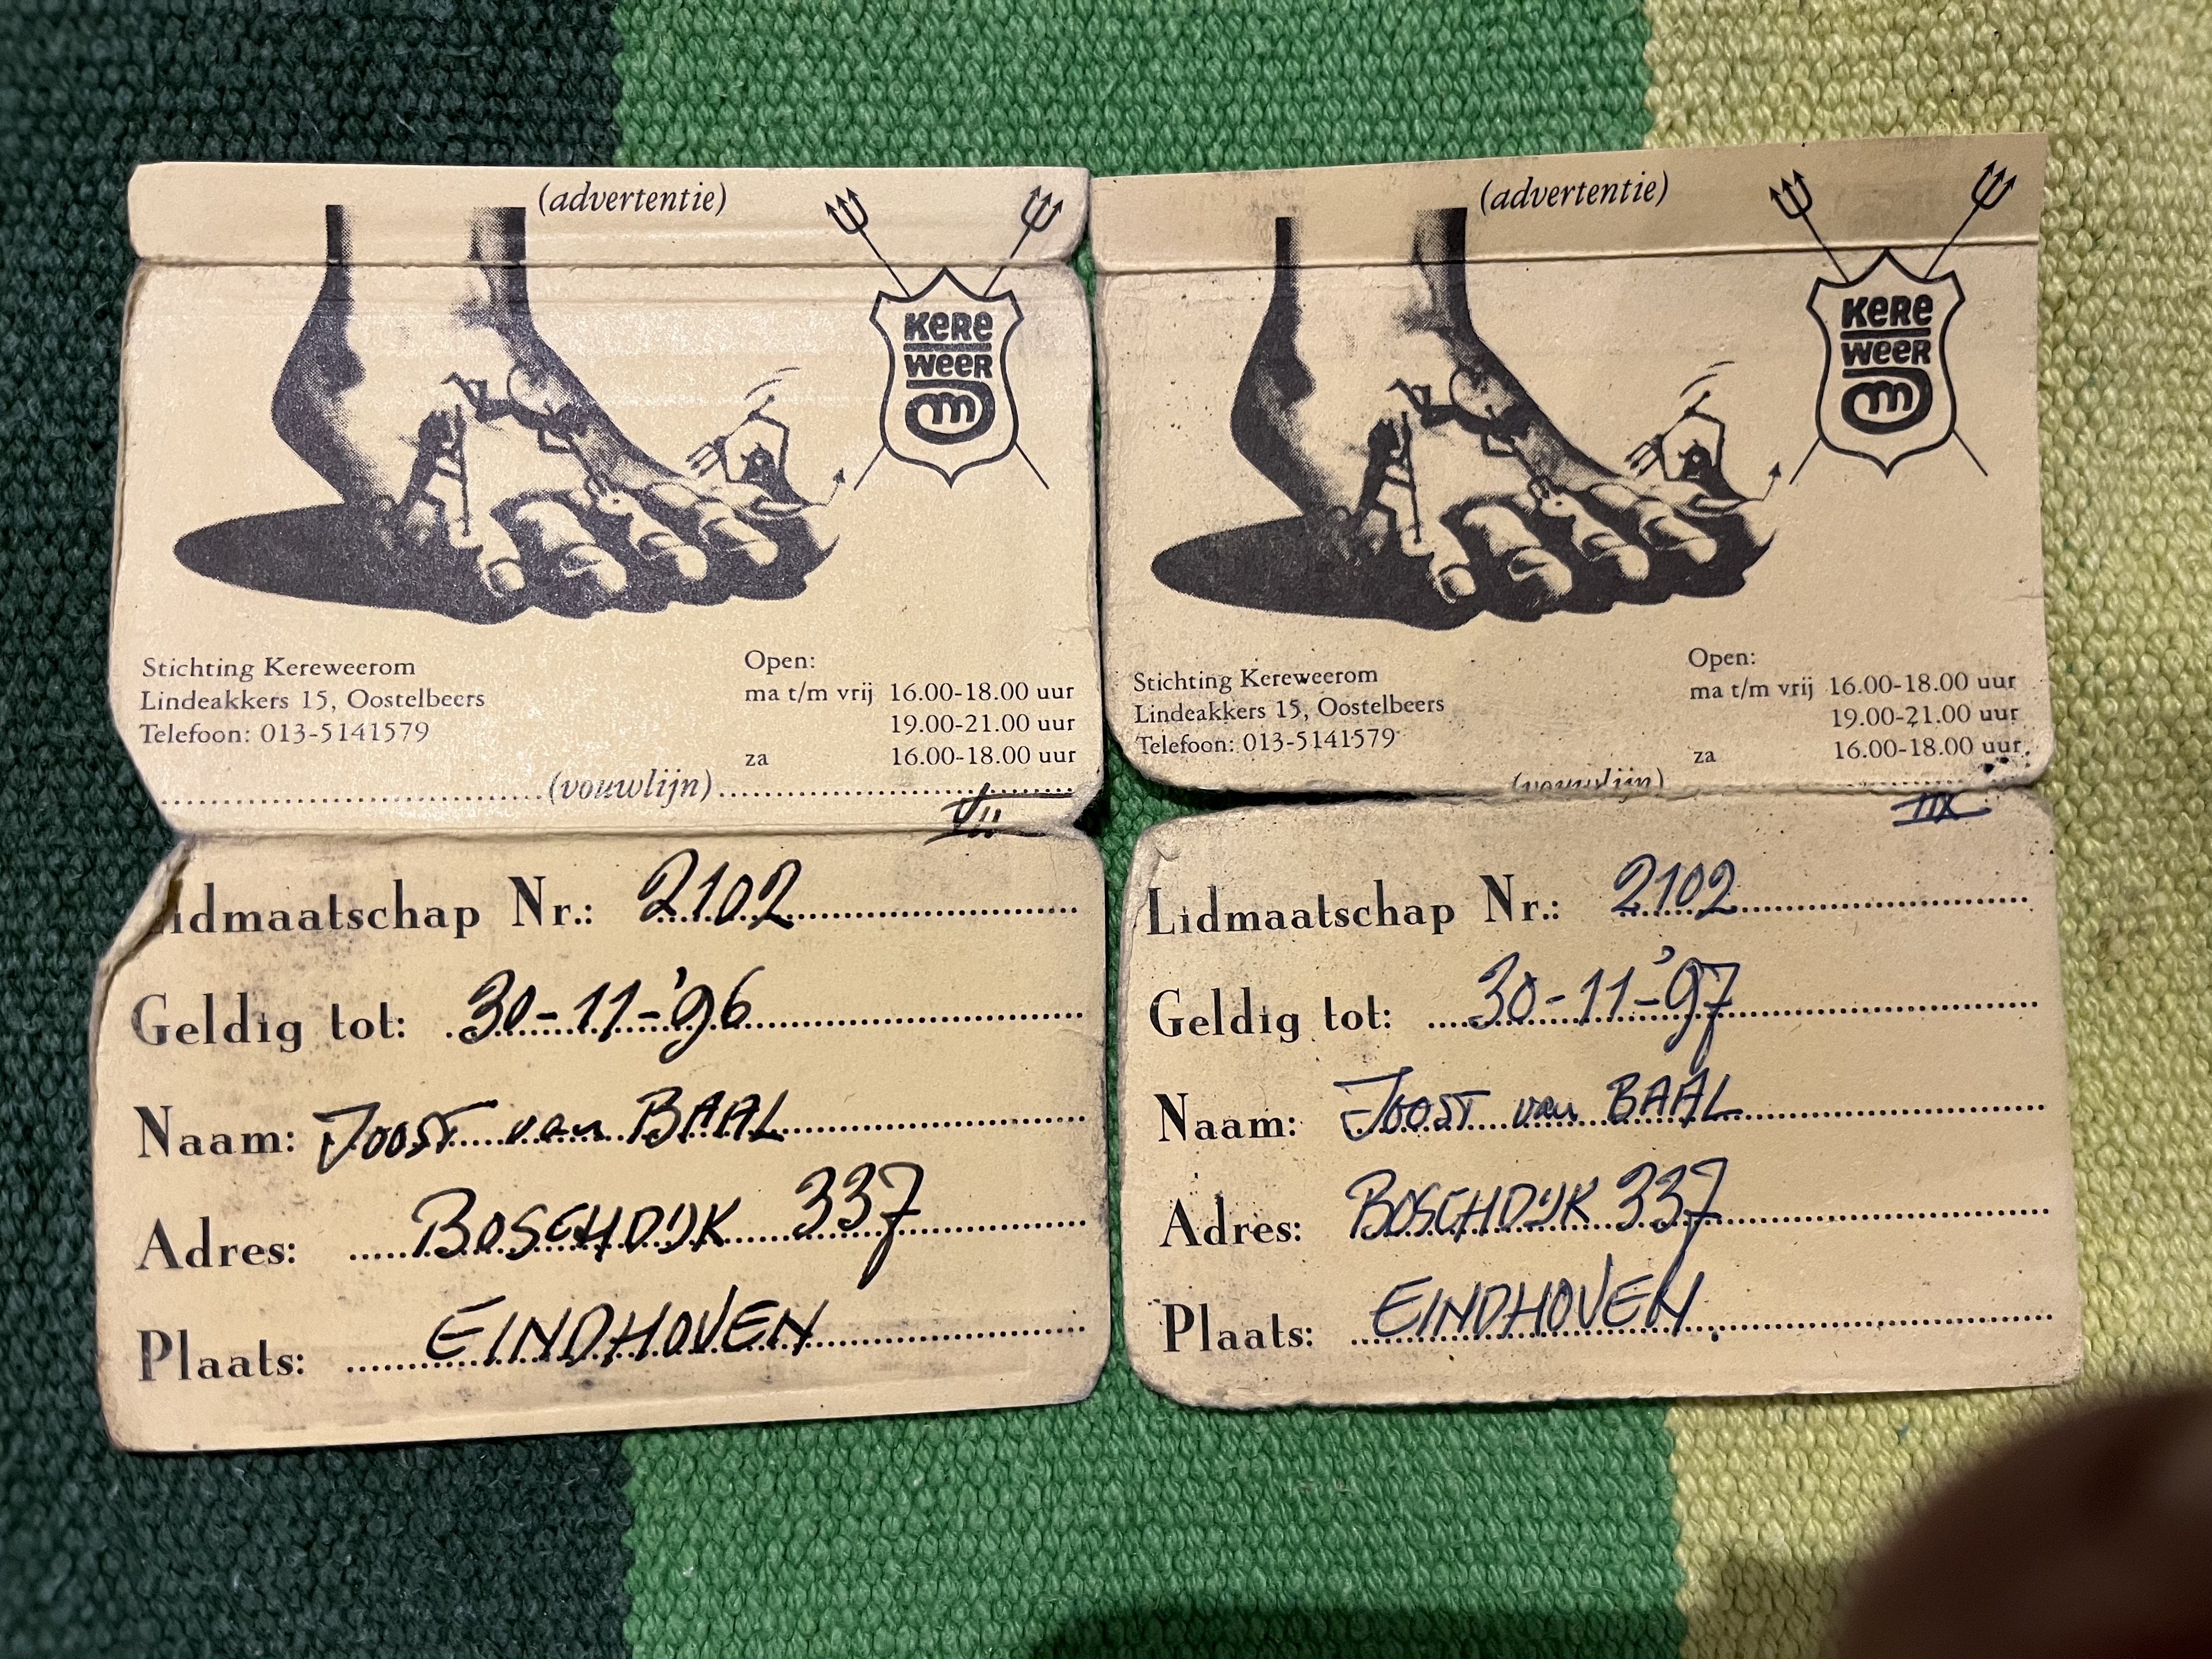 (advertentie)
KERE
WEER
Om
Stichting Kereweerom
Lindeakkers 15, Oostelbeers
Telefoon: 013-5141579
Open:
ma t/m vrij 16.00-18.00 uur
19.00-21.00 uur
za 16.00-18.00 uur
(vouwlijn)
VII
Lidmaatschap Nr.: 2102
Geldig tot: 30-11-'96
Naam: JOOST van BAAL
Adres: BOSCHDIJK 337
Plaats: EINDHOVEN
(advertentie)
KERE
WEER
Om
Stichting Kereweerom
Lindeakkers 15, Oostelbeers
Telefoon: 013-5141579
Open:
ma t/m vrij 16.00-18.00 uur
19.00-21.00 uur
za 16.00-18.00 uur
(vouwlijn)
IIX
Lidmaatschap Nr.: 2102
Geldig tot: 30-11-'97
Naam: JOOST van BAAL
Adres: BOSCHDIJK 337
Plaats: EINDHOVEN.